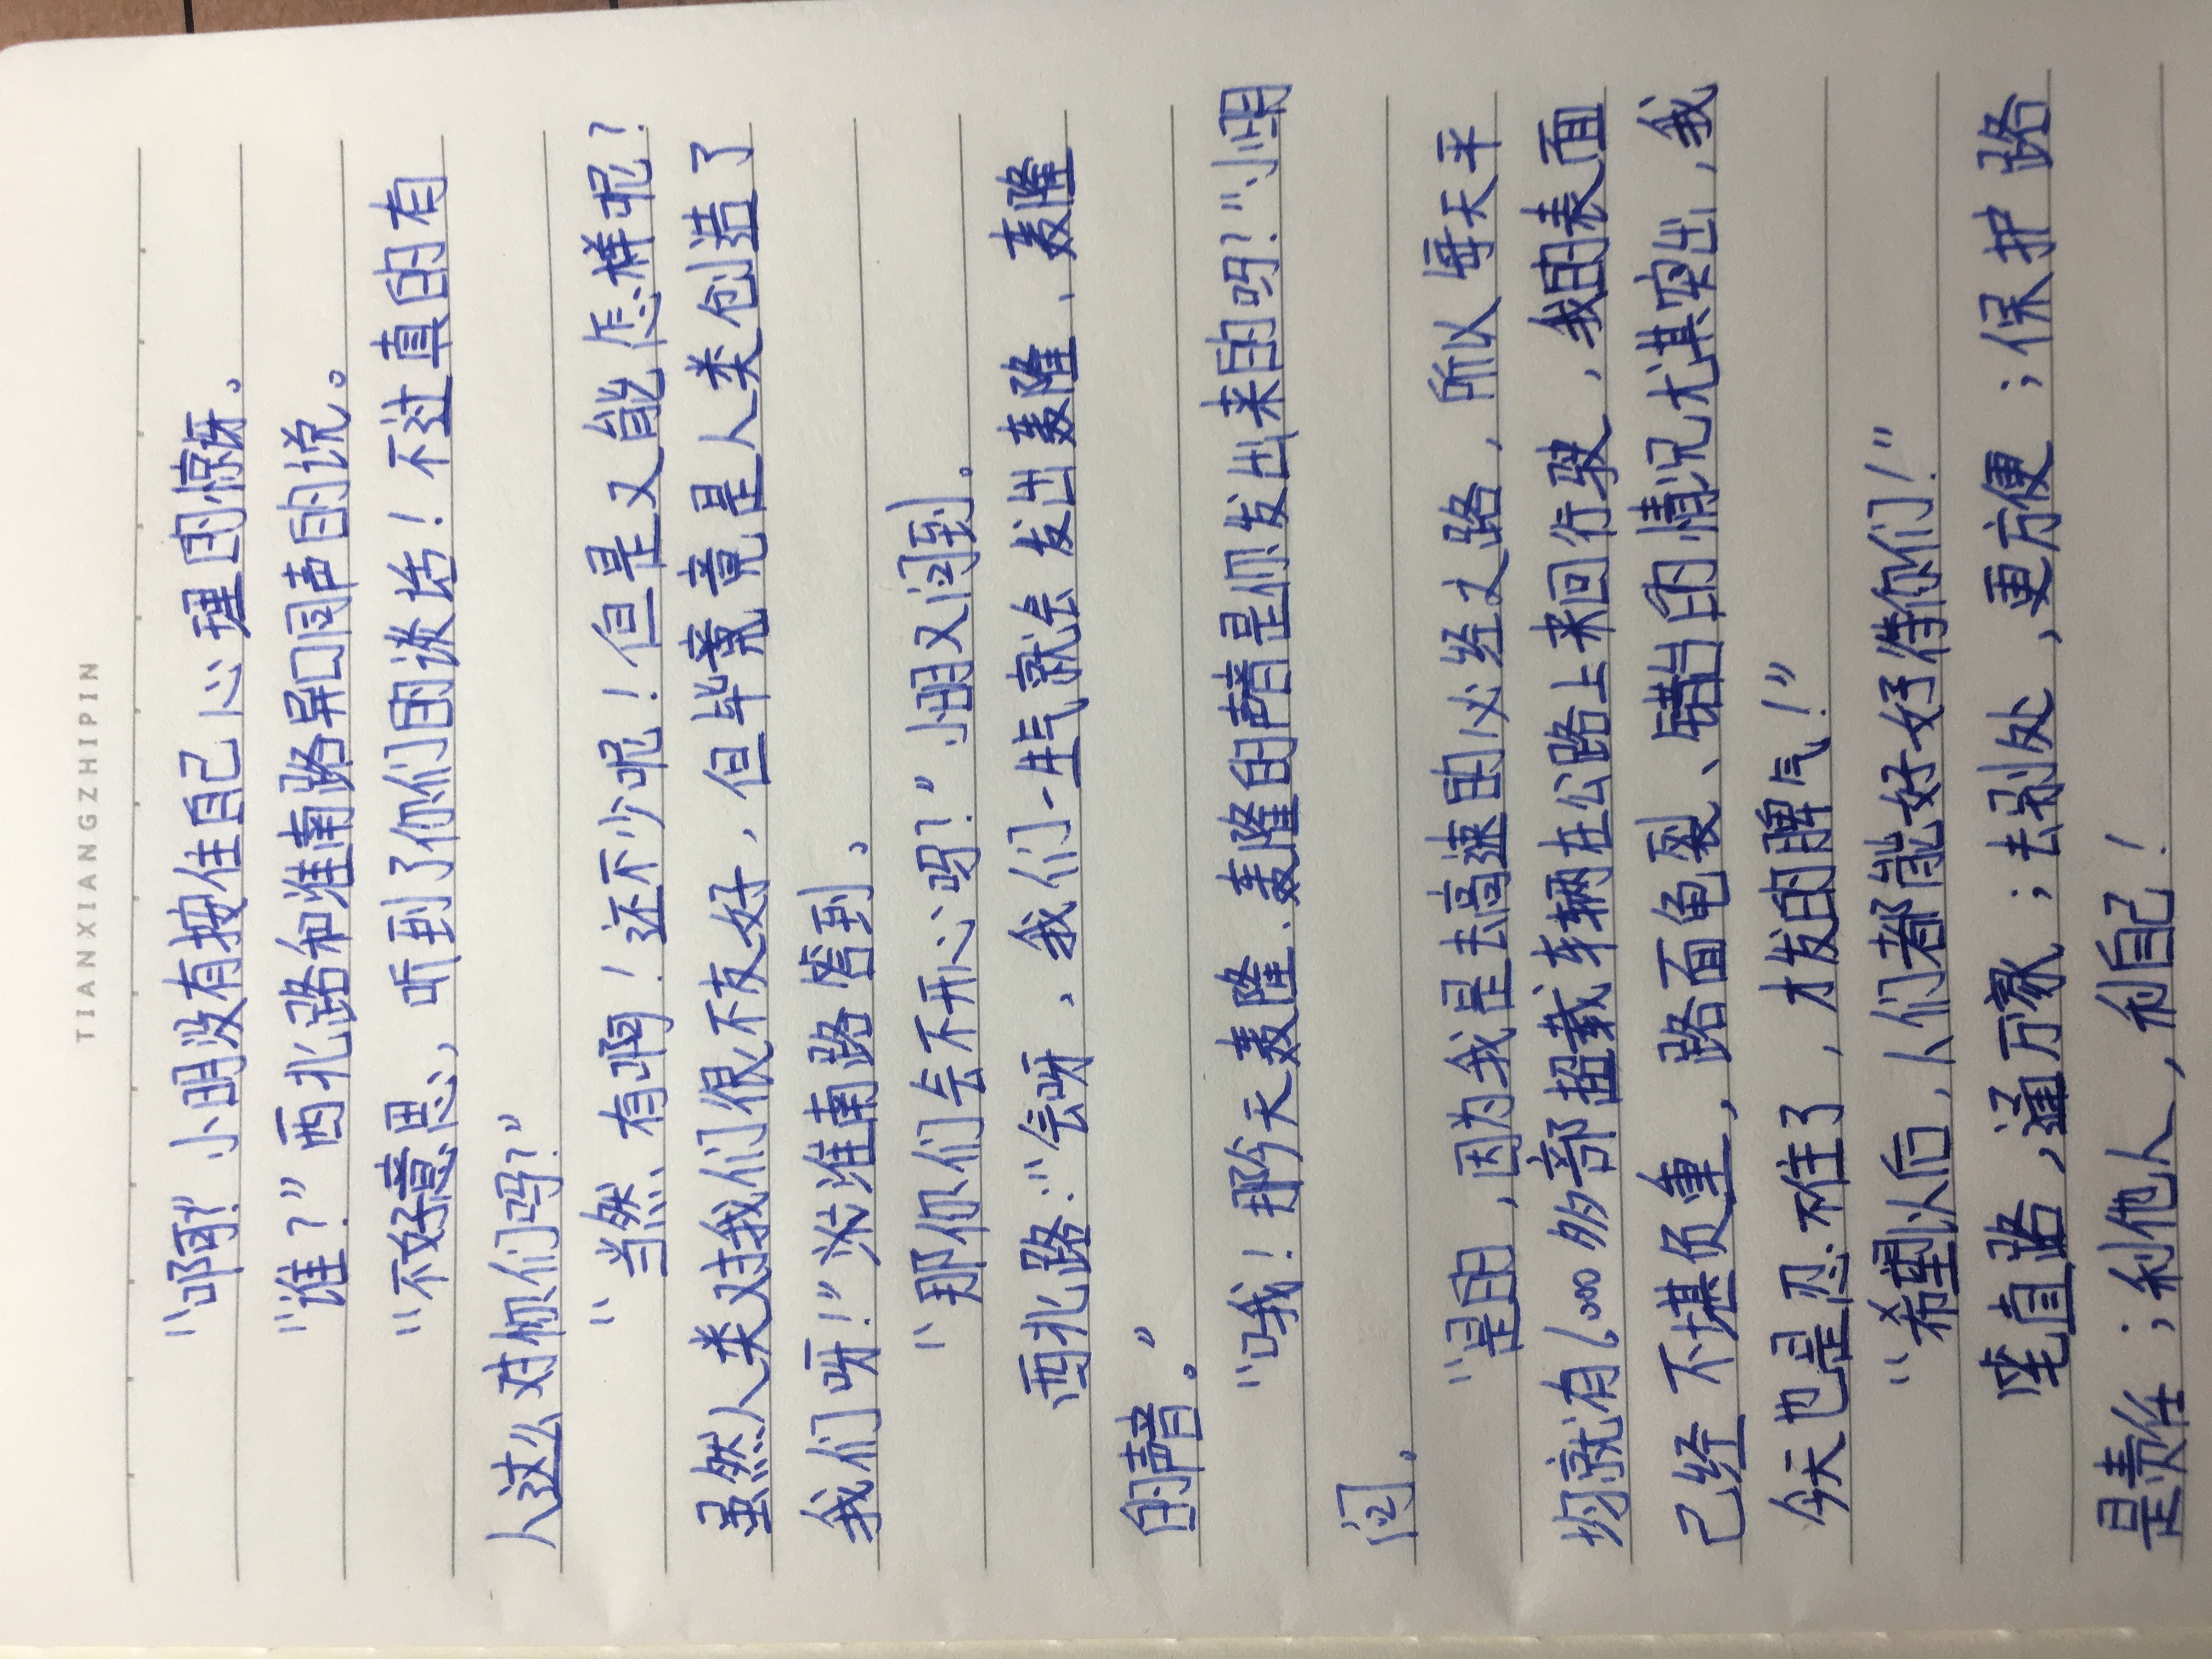 TIANXIANGZHIPIN
“啊！”小明没有按住自己心理的惊讶。
“谁？”西北路和淮南路异口同声的说。
“不好意思，听到了你们的谈话！不过真的有
人这么对你们吗？”
“当然有啊！还不少呢！但是又能怎样呢？
虽然人类对我们很不友好，但毕竟是人类创造了
我们呀！”淮南路答到。
“那你们会不开心吗？”小明又问到。
西北路：“会呀，我们一生气就会发出轰隆、轰隆
的声音。”
“哦！那今天轰隆、轰隆的声音是你发出来的吗？”小明
问。
“是的，因为我是去高速的必经之路，所以每天平
均就有6000多部超载车辆在公路上来回行驶，我的表面
已经不堪负重，路面龟裂、错台的情况尤其突出，我
今天也是忍不住了，才发的脾气！”
“希望以后，人们都能好好待你们！”
一座直路，通万家；去别处，更方便；保护路
是责任；利他人，利自己！